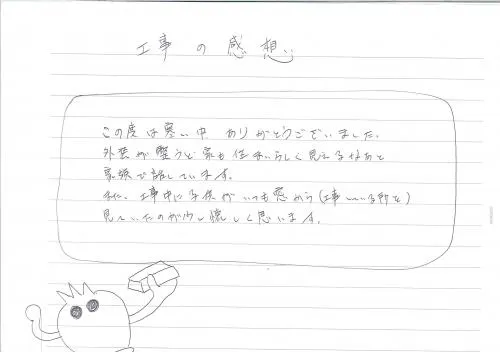 工事の感想
この度は暑い中 ありがとうございました。
外壁が整うと家も住まいらしく見えるなあと
家族で話しています。
また、工事中に子供がいつも窓から(工事している所を)
見ていたのが少し懐しく思います。